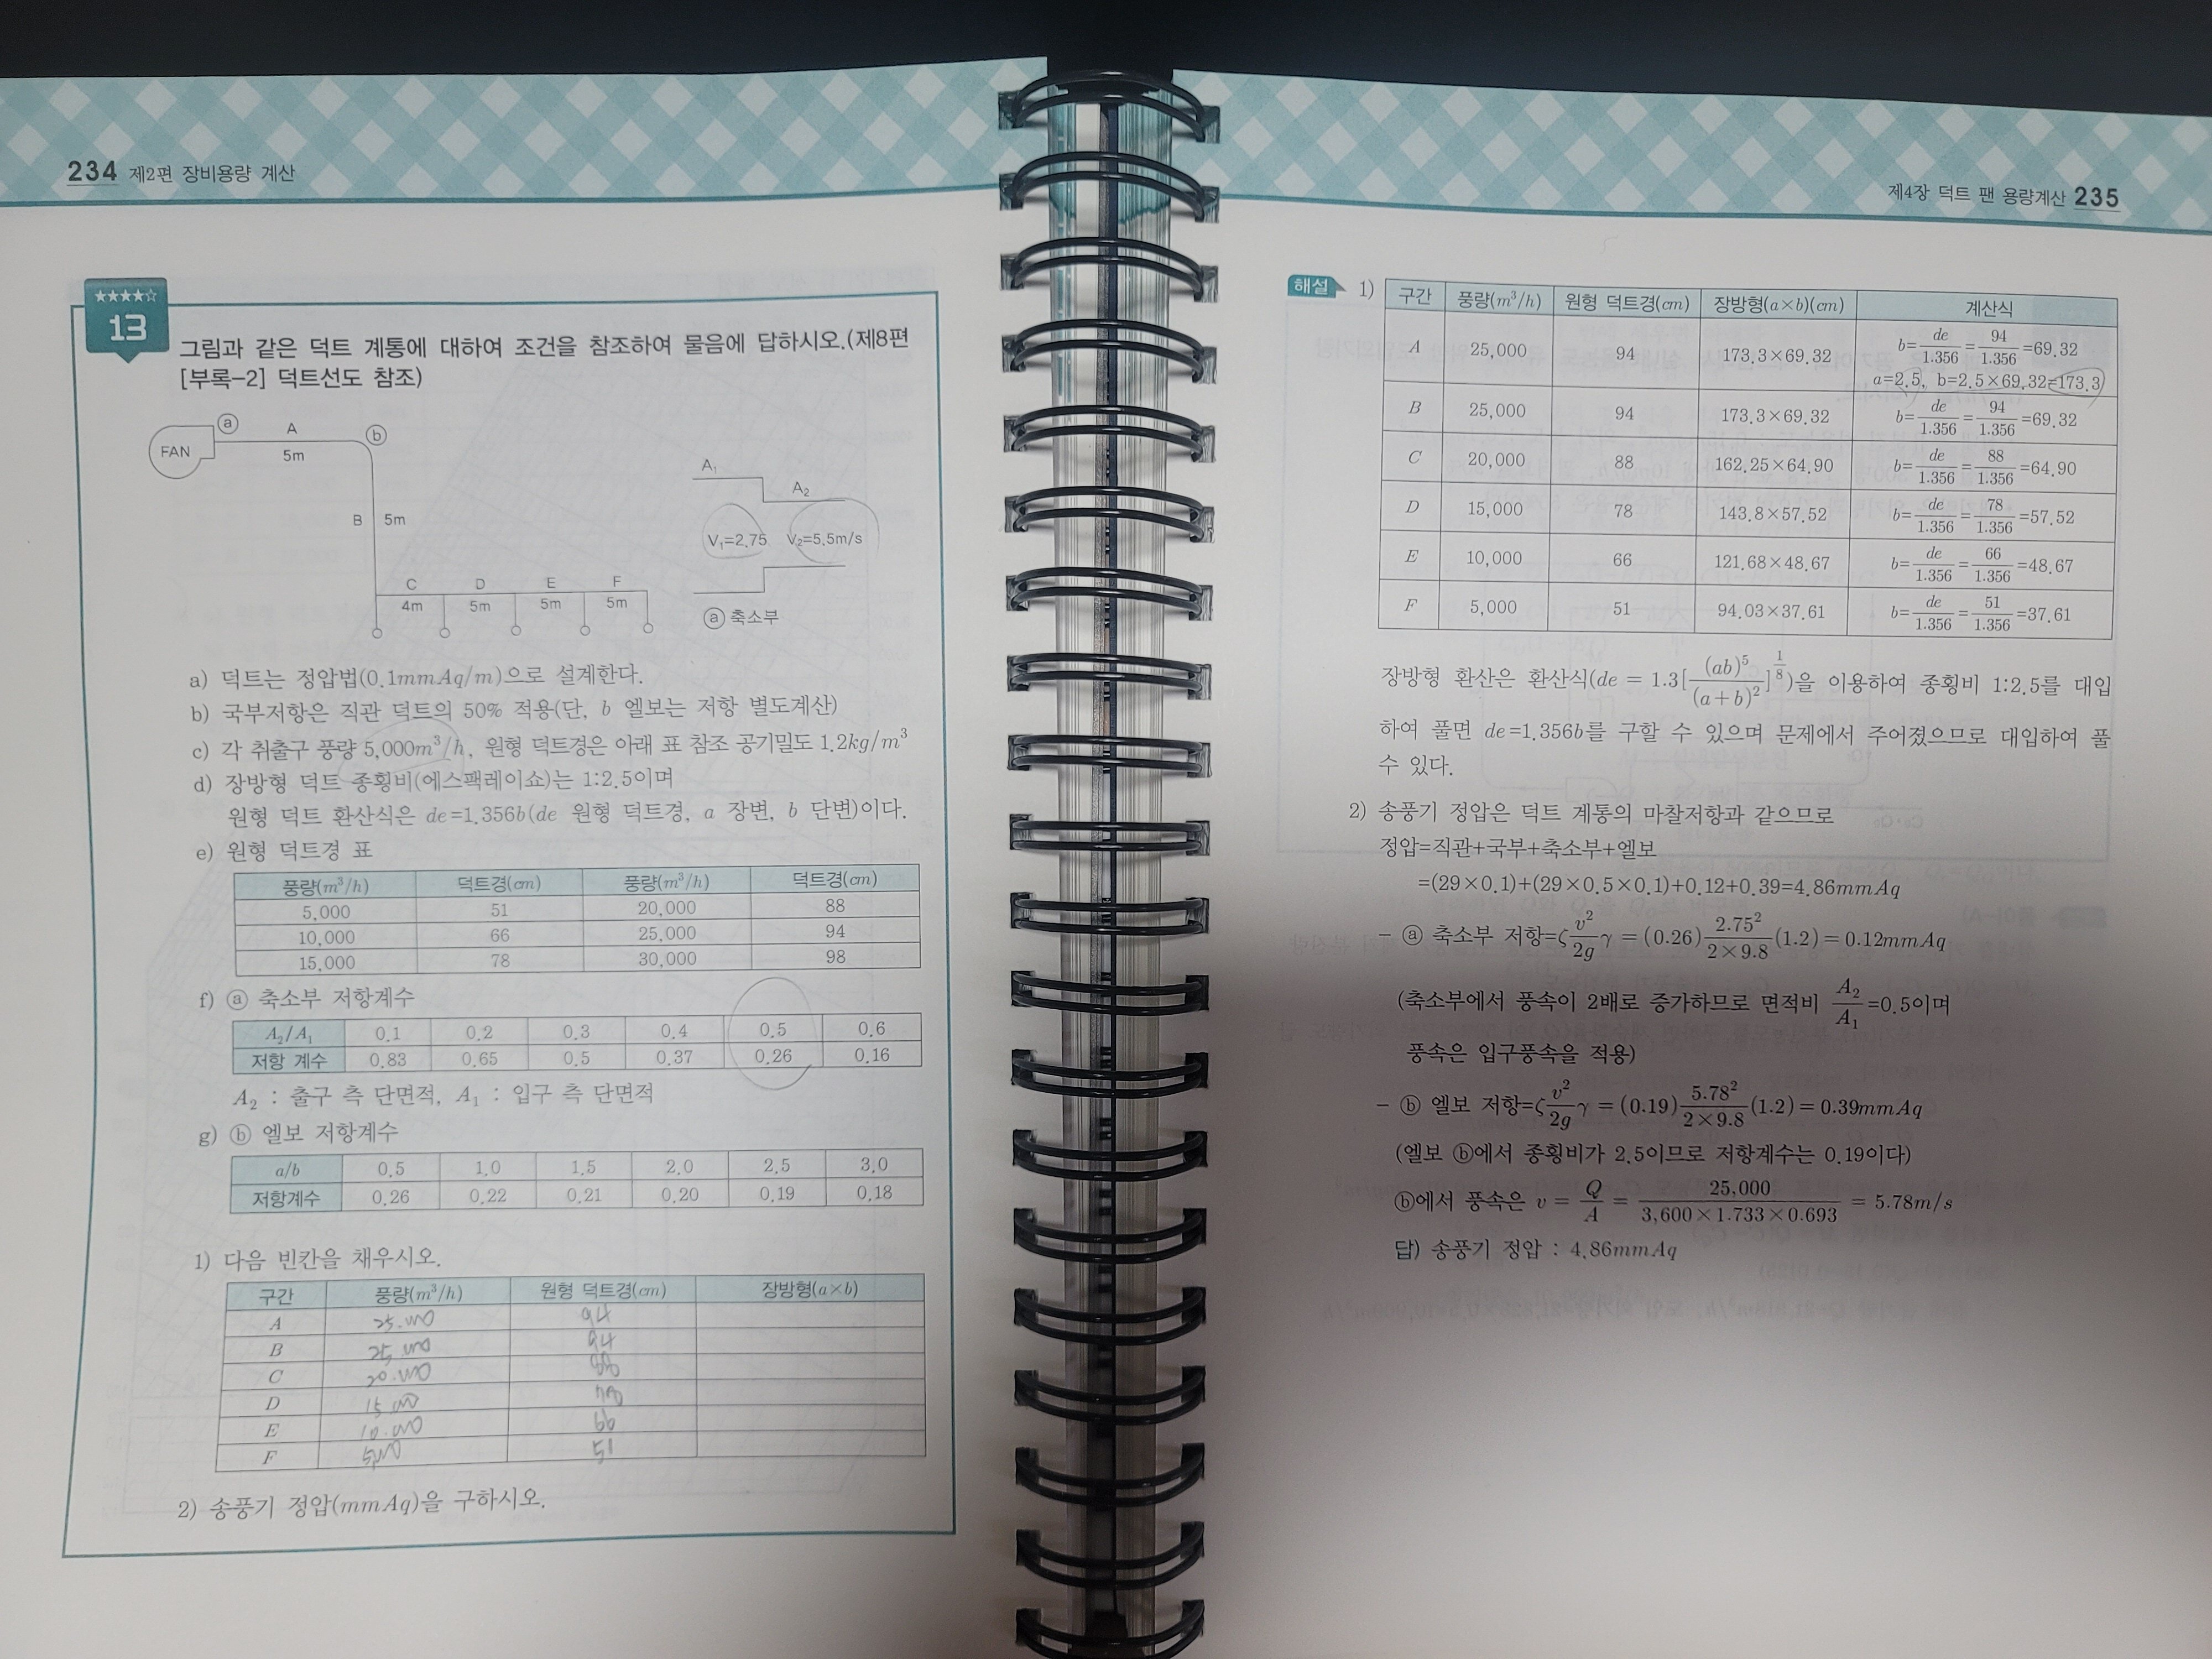 234 제2편 장비용량 계산
★★★★☆
13
그림과 같은 덕트 계통에 대하여 조건을 참조하여 물음에 답하시오.(제8편
[부록-2] 덕트선도 참조)
FAN
ⓐ
A
5m
ⓑ
B 5m
C D E F
4m 5m 5m 5m
A₁
A₂
V₁=2.75 V₂=5.5m/s
ⓐ 축소부
a) 덕트는 정압법(0.1mmAq/m)으로 설계한다.
b) 국부저항은 직관 덕트의 50% 적용(단, b 엘보는 저항 별도계산)
c) 각 취출구 풍량 5,000m³/h, 원형 덕트경은 아래 표 참조 공기밀도 1.2kg/m³
d) 장방형 덕트 종횡비(에스팩레이쇼)는 1:2.5이며
원형 덕트 환산식은 de=1.356b(de 원형 덕트경, a 장변, b 단변)이다.
e) 원형 덕트경 표
풍량(m³/h) 덕트경(cm) 풍량(m³/h) 덕트경(cm)
5,000 51 20,000 88
10,000 66 25,000 94
15,000 78 30,000 98
f) ⓐ 축소부 저항계수
A₂/A₁ 0.1 0.2 0.3 0.4 0.5 0.6
저항 계수 0.83 0.65 0.5 0.37 0.26 0.16
A₂ : 출구 측 단면적, A₁ : 입구 측 단면적
g) ⓑ 엘보 저항계수
a/b 0.5 1.0 1.5 2.0 2.5 3.0
저항계수 0.26 0.22 0.21 0.20 0.19 0.18
1) 다음 빈칸을 채우시오.
구간 풍량(m³/h) 원형 덕트경(cm) 장방형(a×b)
A 25.000 94
B 25.000 94
C 20.000 88
D 15.000 78
E 10.000 66
F 5000 51
2) 송풍기 정압(mmAq)을 구하시오.
제4장 덕트 팬 용량계산 235
해설 1)
구간 풍량(m³/h) 원형 덕트경(cm) 장방형(a×b)(cm) 계산식
A 25,000 94 173.3×69.32 b=de/1.356=94/1.356=69.32
a=2.5, b=2.5×69.32=173.3
B 25,000 94 173.3×69.32 b=de/1.356=94/1.356=69.32
C 20,000 88 162.25×64.90 b=de/1.356=88/1.356=64.90
D 15,000 78 143.8×57.52 b=de/1.356=78/1.356=57.52
E 10,000 66 121.68×48.67 b=de/1.356=66/1.356=48.67
F 5,000 51 94.03×37.61 b=de/1.356=51/1.356=37.61
장방형 환산은 환산식(de = 1.3[(ab)⁵/(a+b)²]^(1/8))을 이용하여 종횡비 1:2.5를 대입
하여 풀면 de=1.356b를 구할 수 있으며 문제에서 주어졌으므로 대입하여 풀
수 있다.
2) 송풍기 정압은 덕트 계통의 마찰저항과 같으므로
정압=직관+국부+축소부+엘보
=(29×0.1)+(29×0.5×0.1)+0.12+0.39=4.86mmAq
- ⓐ 축소부 저항=ζv²/2g γ = (0.26)2.75²/2×9.8(1.2) = 0.12mmAq
(축소부에서 풍속이 2배로 증가하므로 면적비 A₂/A₁=0.5이며
풍속은 입구풍속을 적용)
- ⓑ 엘보 저항=ζv²/2g γ = (0.19)5.78²/2×9.8(1.2) = 0.39mmAq
(엘보 ⓑ에서 종횡비가 2.5이므로 저항계수는 0.19이다)
ⓑ에서 풍속은 v = Q/A = 25,000/3,600×1.733×0.693 = 5.78m/s
답) 송풍기 정압 : 4.86mmAq